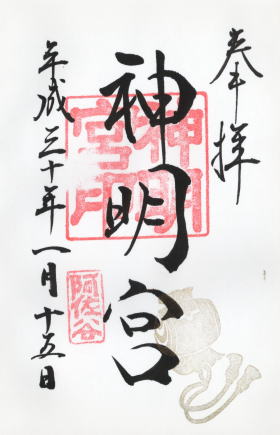 奉拝
神明宮
神明宮印
阿佐谷
平成三十年一月十五日